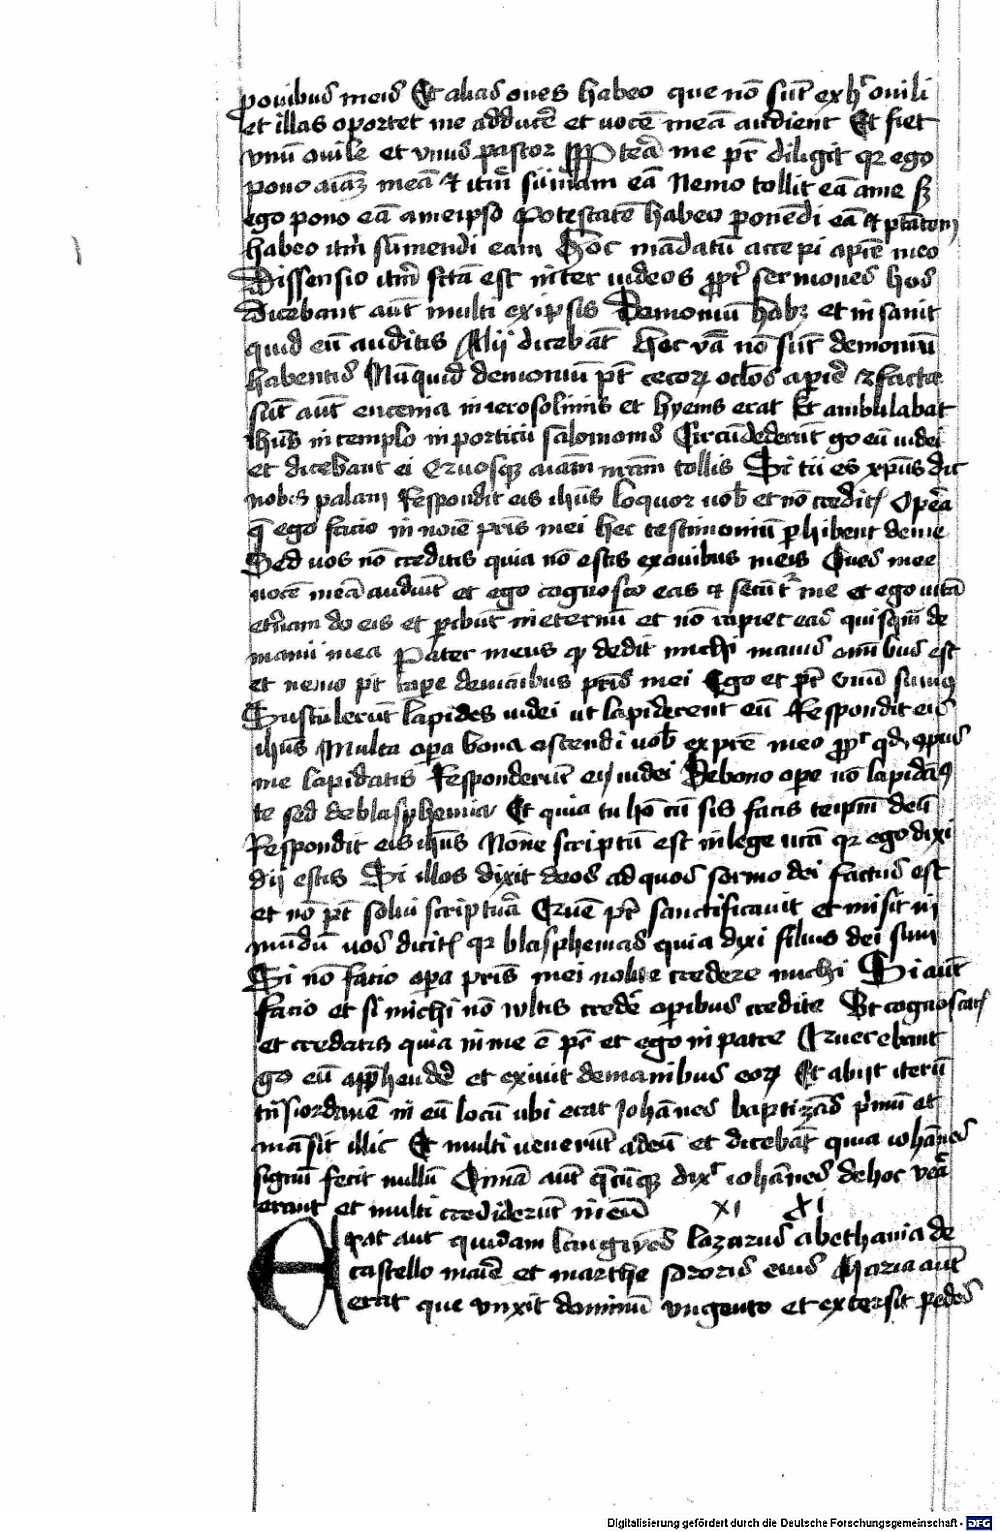 p ouibus meis Et alias oues habeo que nō sūt ex hͦ ouili
et illas oportet me adducẽ et uocē meā audient Et fiet
vnū ouile et vnus pastor Ppteā me pr̄ diligit qꝛ ego
pono aīaꝫ meā ⁊ itm̄ sūmam eā Nemo tollit eā a me sꝫ
ego pono eā a meipso Potestatē habeo ponēdi eā ⁊ ptātem
habeo itm̄ sūmendi eam Hoc mādatū accepi a p̄rē meo
Dissensio itm̄ fc̄tā est inter iudeos ꝓpt̄ sermones hos
Dicebant aūt multi ex ipsis Demoniū habꝫ et insanit
quid eū auditis Alij dicebāt Hec v̄ā nō sūt demoniū
habentis Nūquid demoniū pt̄ cecoꝝ oc̄los apiē facta
sūt aūt encenia in ierosolimis et hyems erat Et ambulabat
ihūs in templo in porticū salomonis Circūdederūt ḡo eū iudei
et dicebant ei Quousqꝫ aīam nr̄am tollis Si tu es xp̄us dic
nobis palam Respondit eis ihūs loquor uob̄ et nō creditꝭ Opēa
q̄ ego facio in noīe pr̄is mei hec testimoniū ꝑhibent de me
Sed uos nō creditis quia nō estis ex ouibus meis Oues mee
uocē meā audiūt et ego cognosco eas ⁊ secūtͬ me et ego uitā
et̄nam do eis et ꝑibūt in eternū et nō rapiet eas quisqm̄ de
manu mea Pater meus qͩ dedit michi maius omībus est
et nemo pt̄ rape de manibus pr̄is mei Ego et pr̄ vnū sumꝰ
Sustulerūt lapides iudei ut lapidarent eū Respondit eis
ihūs Multa opa bona ostendi uob̄ ex p̄rē meo ꝓpͭ qd̄ opus
me lapidatis Responderūt ei iudei De bono ope nō lapidāꝰ
te sed de blasphemia Et quia tu hō cū sis facis teipm̄ deū
Respondit eis ihūs Nōne scriptū est in lege ur̄a qꝛ ego dixi
dij estis Si illos dixit deos ad quos sermo dei factus est
et nō pt̄ solui scriptuā Quē pr̄ sanctificauit et misit in
mūdū uos dicitꝭ qꝛ blasphemas quia dixi filius dei sum
Si nō facio opa pr̄is mei nolite credere michi Si aūt
facio et si michi nō wltis credē opibus credite Ut cognoscatꝭ
et credatis quia in me ē pr̄ et ego in patre Querebant
ḡo eū app̄hendē et exiuit de manibus eoꝝ Et abijt iterū
tn̄s iordanē in eū locū ubi erat Johānes baptizās p̄mū et
māsit illic Et multi venerūt ad eū et dicebāt quia iohānes
signū fecit nullū Omīa aūt q̄cūqꝫ dixͭ iohānes de hoc veā
erant et multi crediderūt in eū XI XI
Erat aūt quidam languēs lazarus a bethania de
castello marie et marthe sororis eius Maria aūt
erat que vnxit dominū vngento et extersit pedes
Digitalisierung gefördert durch die Deutsche Forschungsgemeinschaft - DFG